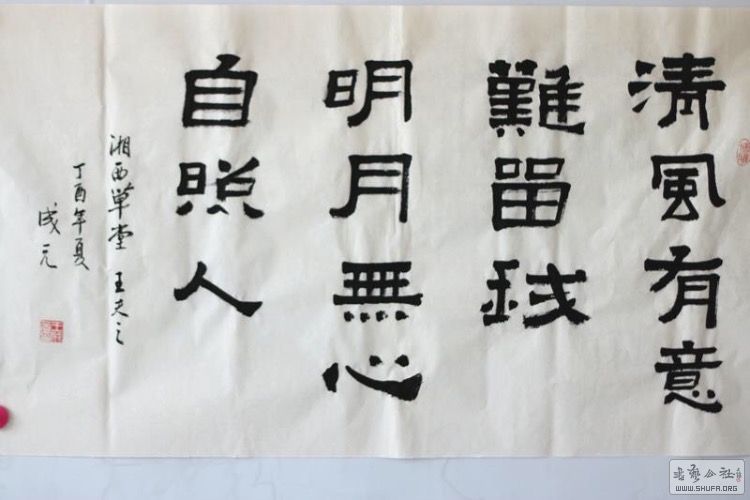 清風有意
難留我
明月無心
自照人
湘西草堂 王夫之
丁酉年夏
成元
书艺公社
WWW.SHUFA.ORG